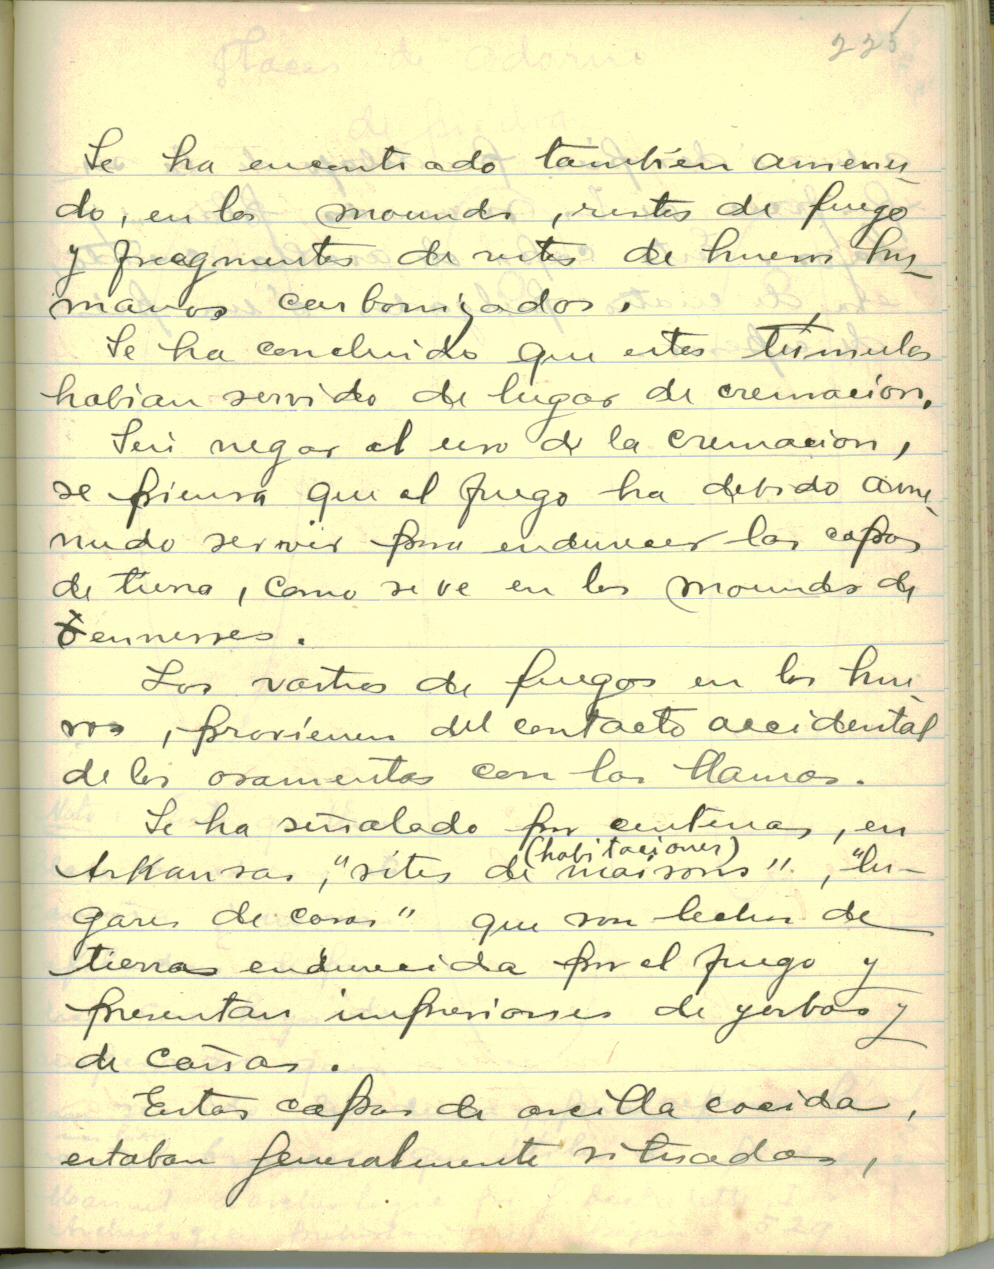 225
Se ha encontrado tambien amenu-
do, en los mounds, restos de fuego
y fragmentos de restos de huesos hu-
manos carbonizados.
Se ha concluido que estos túmulos
habian servido de lugar de cremación.
Sin negar el uso de la cremacion,
se piensa que el fuego ha debido ame-
nudo servir para endurecer las capas
de tierra, como se ve en los mounds de
Tennesses.
Los rastros de fuegos en los hue-
sos, provienen del contacto accidental
de los osamentas con las llamas.
Se ha señalado por centenas, en
(habitaciones)
Arkansas, "sites de maisons", "lu-
gares de casas" que son lechos de
tierras endurecida por el fuego y
presentan impresiones de yerbas y
de cañas.
Estas capas de arcilla cocida,
estaban generalmente situadas,